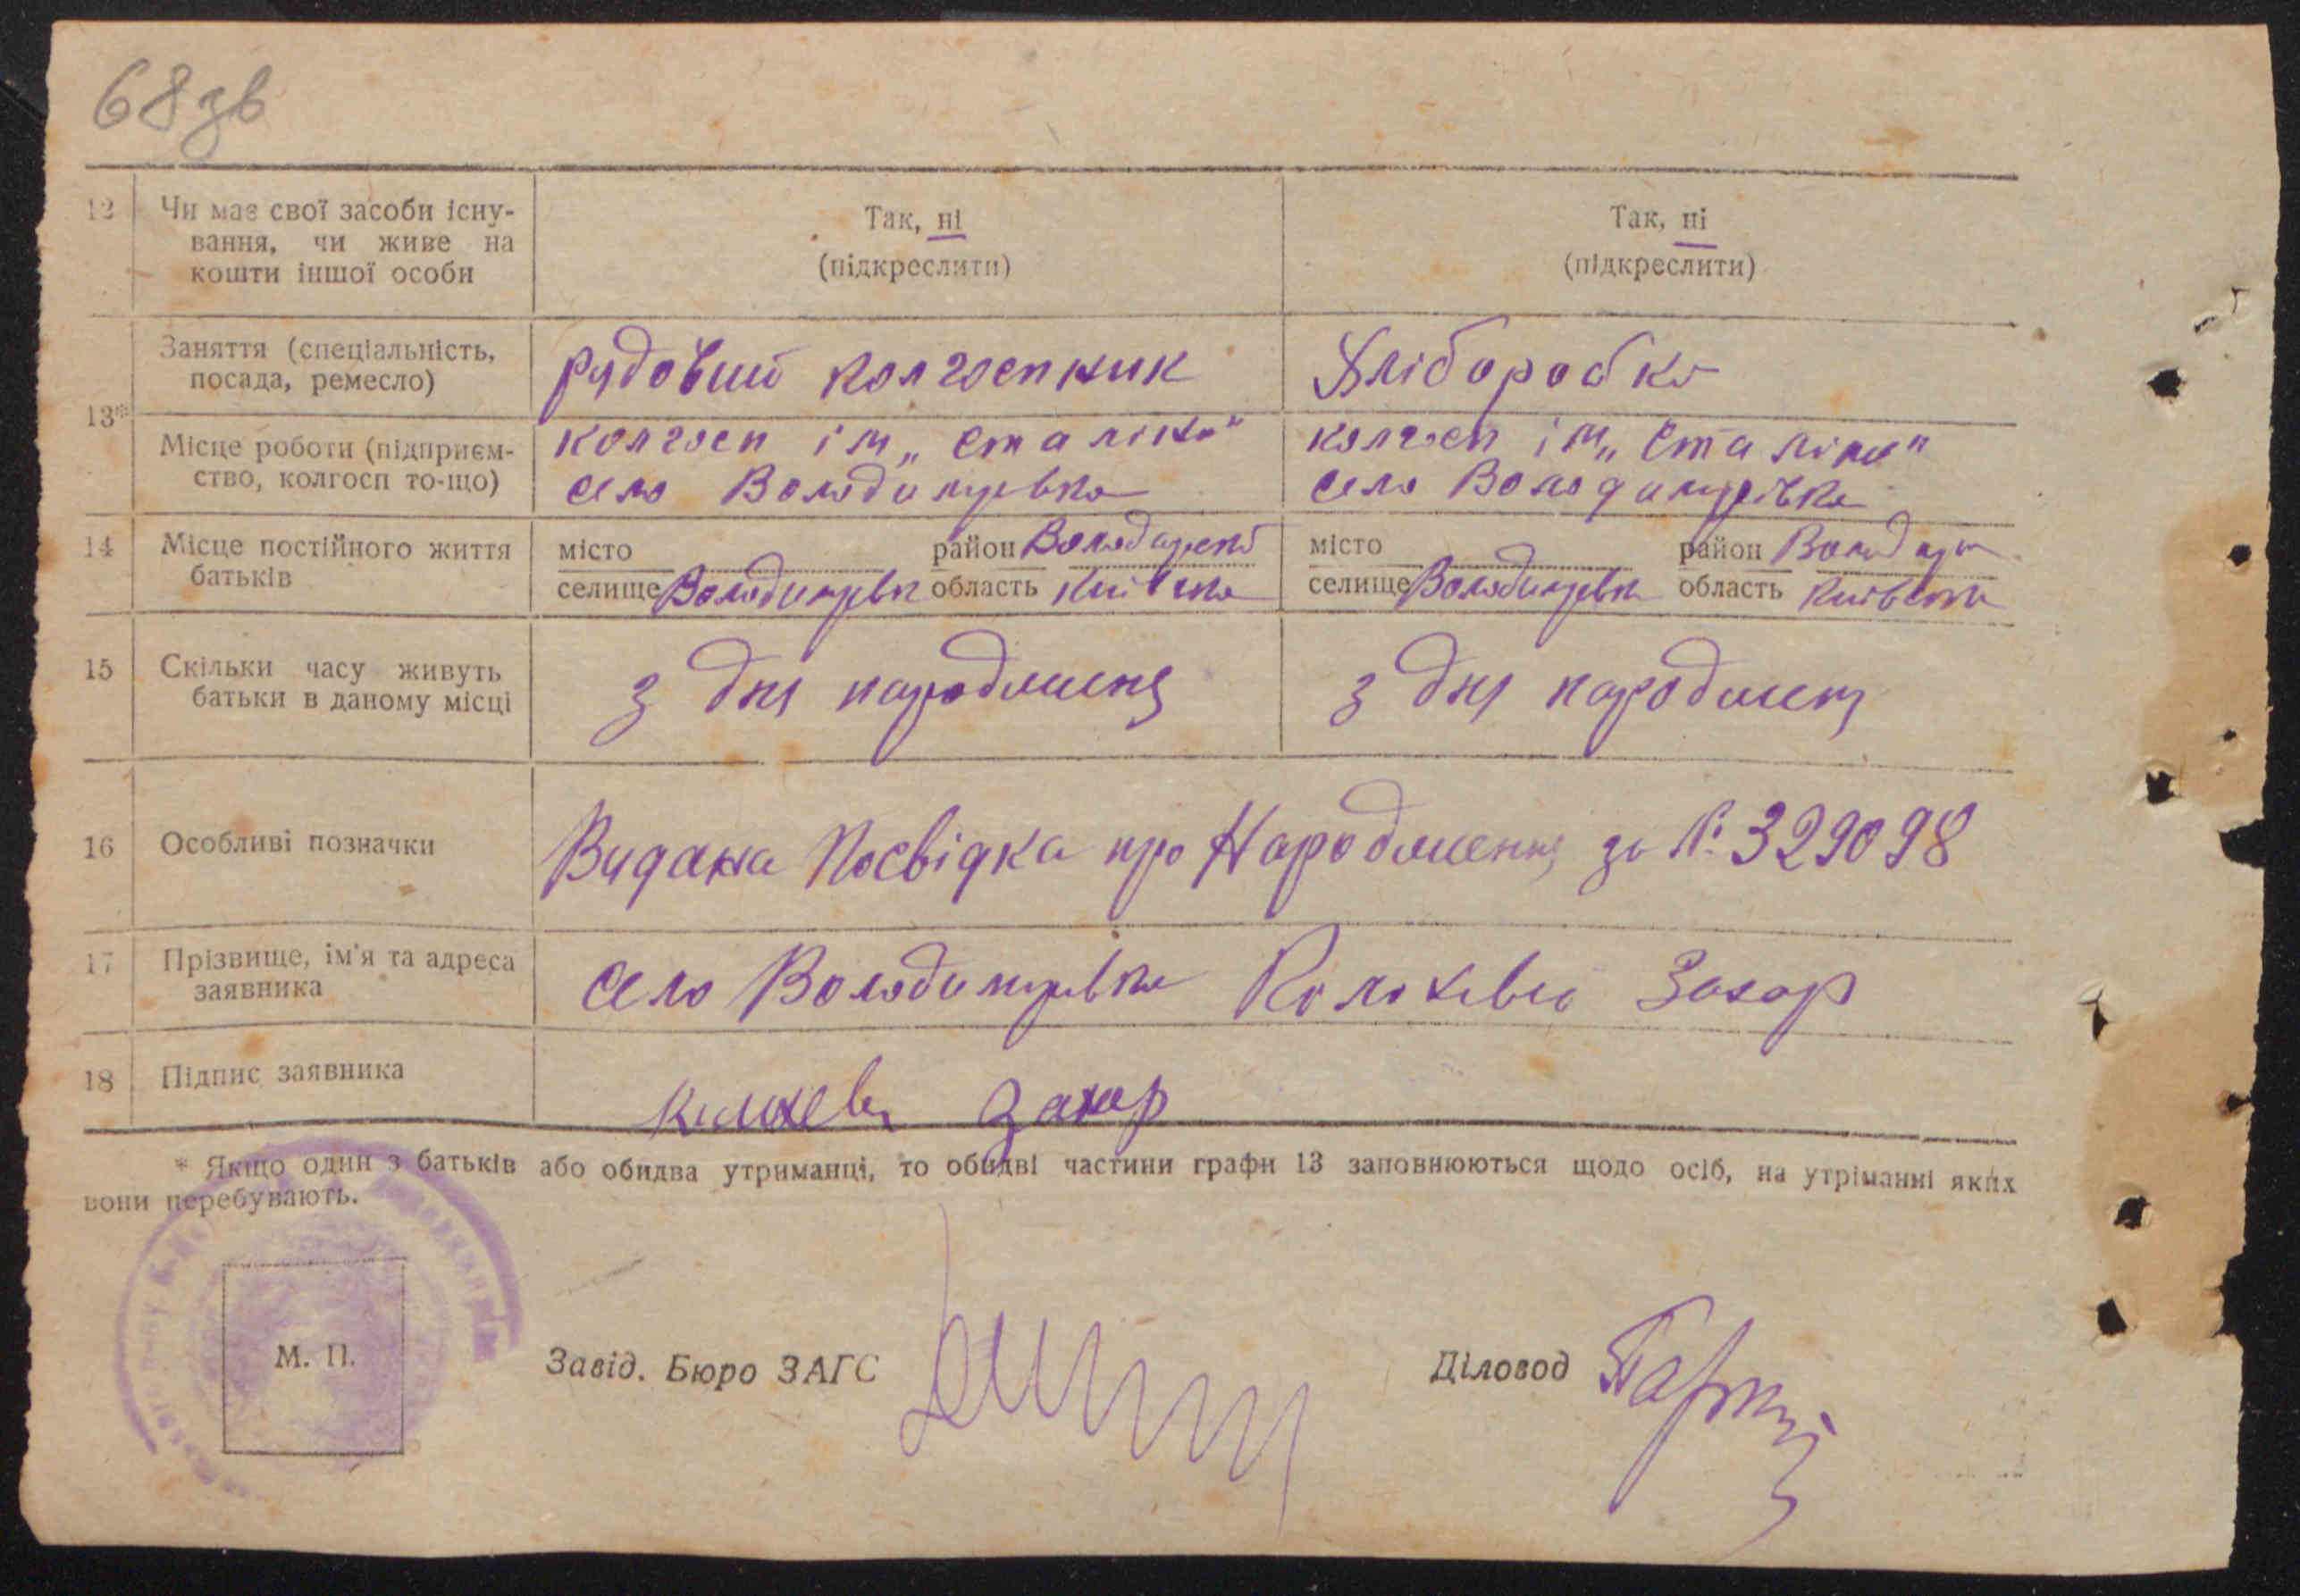 68зв
12 Чи має свої засоби існу-
вання, чи живе на
кошти іншої особи
Так, ні
(підкреслити)
Так, ні
(підкреслити)
13*
Заняття (спеціальність,
посада, ремесло)
рядовий колгоспник
Хліборобка
Місце роботи (підприєм-
ство, колгосп то-що)
колгосп ім „Сталіна"
село Володимирівка
колгосп ім „Сталіна"
село Володимирівка
14 Місце постійного життя
батьків
місто район Володарский
селище Володимирівка область Київська
місто район
селище Володимирівка область Київська
15 Скільки часу живуть
батьки в даному місці
з дня народження
з дня народження
16 Особливі позначки
Видана Посвідка про Народження за №: 329098
17 Прізвище, ім'я та адреса
заявника
село Володимирівка Захар
18 Підпис заявника
Захар
* Якщо один з батьків або обидва утриманці, то обидві частини графи 13 заповнюються щодо осіб, на утріманні яких
вони перебувають.
М. П.
Завід. Бюро ЗАГС
Діловод